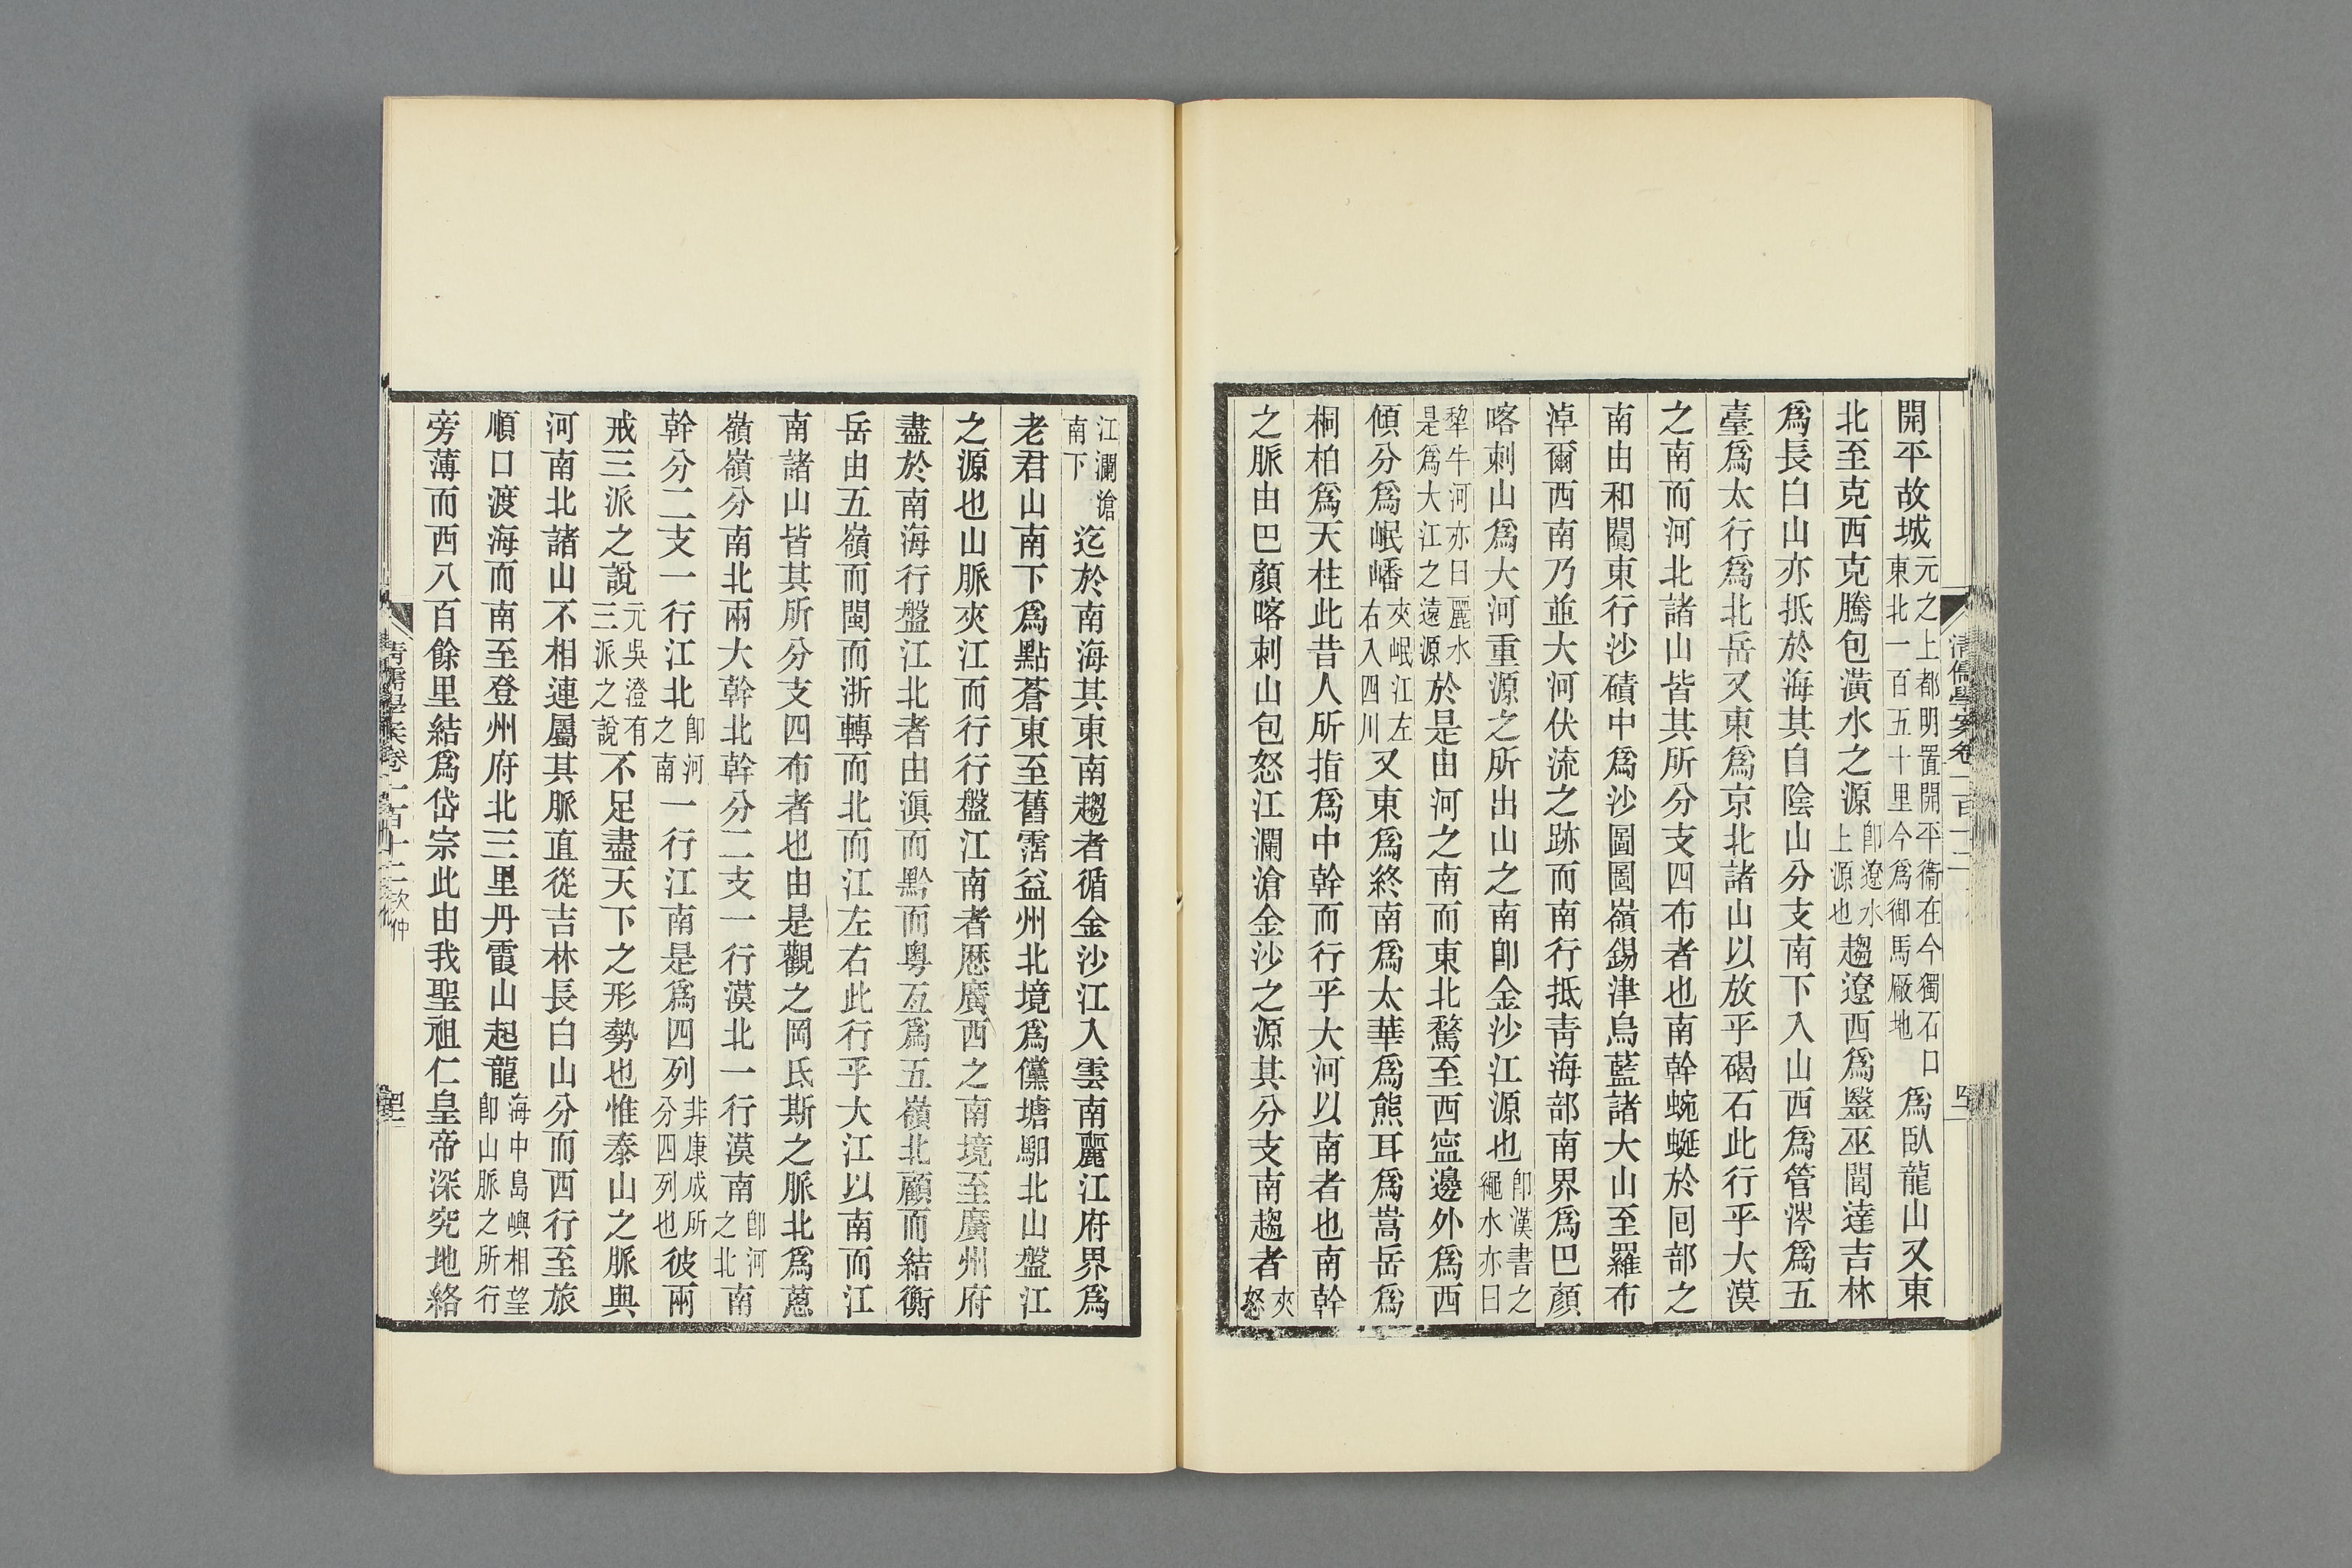 開平故城元之上都明置開平衞在今獨石口東北一百五十里今爲御馬廠地爲臥龍山又東
北至克西克騰包潢水之源卽遼水上源也趨遼西爲毉巫閭達吉林
爲長白山亦抵於海其自陰山分支南下入山西爲管涔爲五
臺爲太行爲北岳又東爲京北諸山以放乎碣石此行乎大漠
之南而河北諸山皆其所分支四布者也南幹蜿蜒於回部之
南由和闐東行沙磧中爲沙圖圖嶺錫津烏藍諸大山至羅布
淖爾西南乃並大河伏流之跡而南行抵靑海部南界爲巴顏
喀剌山爲大河重源之所出山之南卽金沙江源也卽漢書之繩水亦曰
犂牛河亦曰麗水是爲大江之遠源於是由河之南而東北騖至西寧邊外爲西
傾分爲岷嶓夾岷江左右入四川又東爲終南爲太華爲熊耳爲嵩岳爲
桐柏爲天柱此昔人所指爲中幹而行乎大河以南者也南幹
之脈由巴顏喀剌山包怒江瀾滄金沙之源其分支南趨者夾怒
江瀾滄南下迄於南海其東南趨者循金沙江入雲南麗江府界爲
老君山南下爲點蒼東至舊霑益州北境爲儻塘馹北山盤江
之源也山脈夾江而行行盤江南者歷廣西之南境至廣州府
盡於南海行盤江北者由滇而黔而粵亙爲五嶺北顧而結衡
岳由五嶺而閩而浙轉而北而江左右此行乎大江以南而江
南諸山皆其所分支四布者也由是觀之岡氐斯之脈北爲蔥
嶺嶺分南北兩大幹北幹分二支一行漠北一行漠南卽河之北南
幹分二支一行江北卽河之南一行江南是爲四列非康成所分四列也彼兩
戒三派之說元吳澄有三派之說不足盡天下之形勢也惟泰山之脈與
河南北諸山不相連屬其脈直從吉林長白山分而西行至旅
順口渡海而南至登州府北三里丹霞山起龍海中島嶼相望卽山脈之所行
旁薄而西八百餘里結爲岱宗此由我聖祖仁皇帝深究地絡
淸儒學案卷一百十二